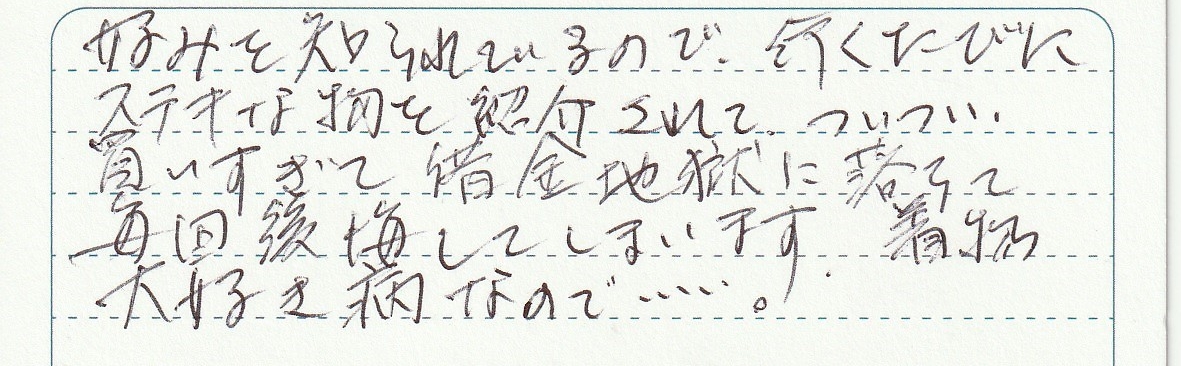 好みを知られているので、行くたびに
ステキな物を紹介されて、ついつい、
買いすぎて借金地獄に落ちて
毎回後悔してしまいます。着物
大好き病なので……。